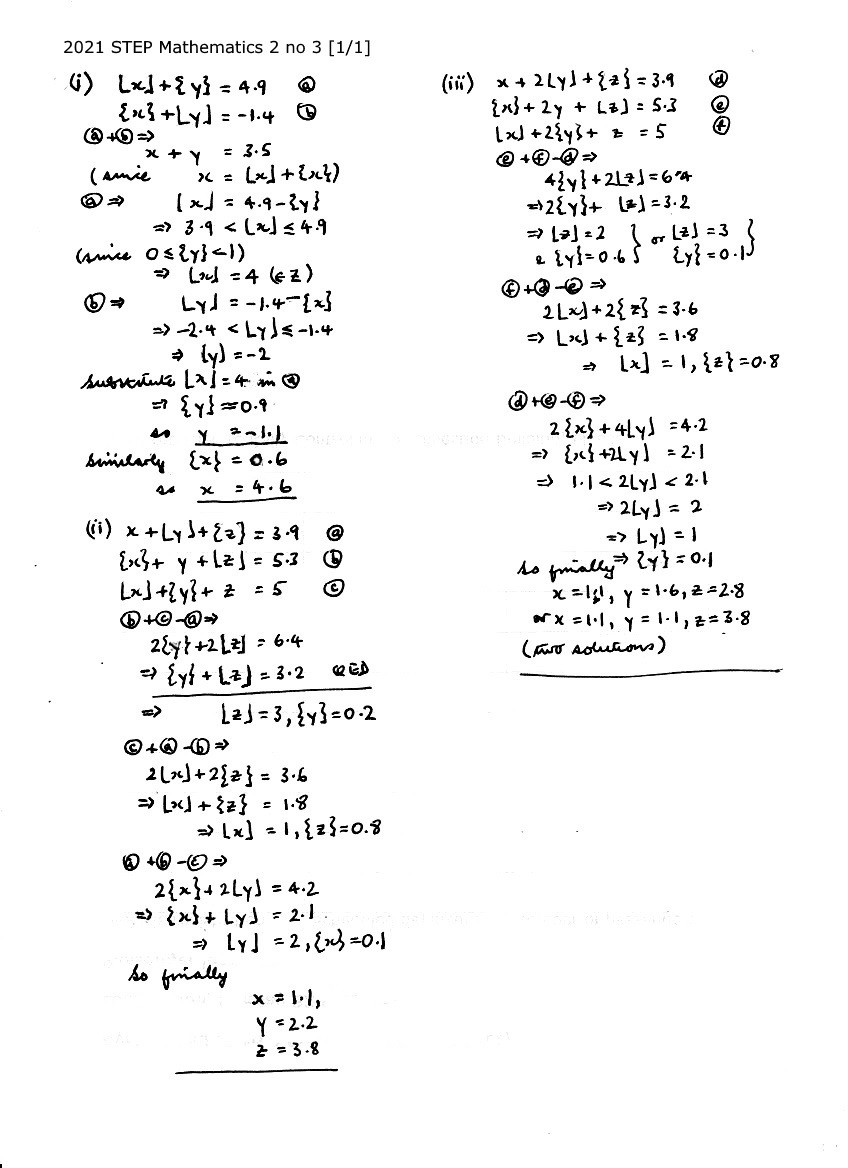 2021 STEP Mathematics 2 no 3 [1/1]
(i) ⌊x⌋+{y} = 4.9 ⓐ
{x}+⌊y⌋ = -1.4 ⓑ
ⓐ+ⓑ ⇒
x + y = 3.5
(since x = ⌊x⌋+{x})
ⓐ ⇒ ⌊x⌋ = 4.9-{y}
⇒ 3.9 < ⌊x⌋ ≤ 4.9
(since 0 ≤ {y} < 1)
⇒ ⌊x⌋ = 4 (∈ Z)
ⓑ ⇒ ⌊y⌋ = -1.4-{x}
⇒ -2.4 < ⌊y⌋ ≤ -1.4
⇒ ⌊y⌋ = -2
substitute ⌊x⌋ = 4 in ⓐ
⇒ {y} = 0.9
so y = -1.1
similarly {x} = 0.6
so x = 4.6
(ii) x + ⌊y⌋ + {z} = 3.9 ⓐ
{x} + y + ⌊z⌋ = 5.3 ⓑ
⌊x⌋ + {y} + z = 5 ⓒ
ⓑ+ⓒ-ⓐ ⇒
2{y}+2⌊z⌋ = 6.4
⇒ {y} + ⌊z⌋ = 3.2 QED
⇒ ⌊z⌋ = 3, {y} = 0.2
ⓒ+ⓐ-ⓑ ⇒
2⌊x⌋+2{z} = 3.6
⇒ ⌊x⌋ + {z} = 1.8
⇒ ⌊x⌋ = 1, {z} = 0.8
ⓐ+ⓑ-ⓒ ⇒
2{x}+2⌊y⌋ = 4.2
⇒ {x} + ⌊y⌋ = 2.1
⇒ ⌊y⌋ = 2, {x} = 0.1
So finally
x = 1.1,
y = 2.2
z = 3.8
(iii) x + 2⌊y⌋ + {z} = 3.9 ⓓ
{x} + 2y + ⌊z⌋ = 5.3 ⓔ
⌊x⌋ + 2{y} + z = 5 ⓕ
ⓔ+ⓕ-ⓓ ⇒
4{y}+2⌊z⌋ = 6.4
⇒ 2{y} + ⌊z⌋ = 3.2
⇒ ⌊z⌋ = 2 } or ⌊z⌋ = 3 }
& {y} = 0.6 } {y} = 0.1 }
ⓕ+ⓓ-ⓔ ⇒
2⌊x⌋+2{z} = 3.6
⇒ ⌊x⌋ + {z} = 1.8
⇒ ⌊x⌋ = 1, {z} = 0.8
ⓓ+ⓔ-ⓕ ⇒
2{x} + 4⌊y⌋ = 4.2
⇒ {x}+2⌊y⌋ = 2.1
⇒ 1.1 < 2⌊y⌋ < 2.1
⇒ 2⌊y⌋ = 2
⇒ ⌊y⌋ = 1
⇒ {y} = 0.1
So finally
x = 1.1, y = 1.6, z = 2.8
or x = 1.1, y = 1.1, z = 3.8
(two solutions)